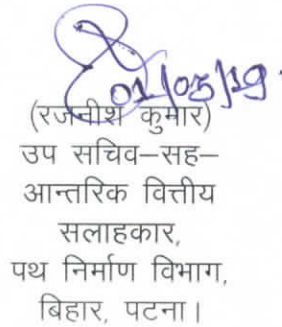 01/05/19
(रजनीश कुमार)
उप सचिव–सह–
आन्तरिक वित्तीय
सलाहकार,
पथ निर्माण विभाग,
बिहार, पटना।